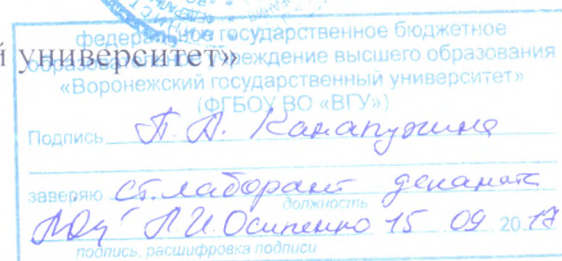 федеральное государственное бюджетное
й университет»
образовательное учреждение высшего образования
«Воронежский государственный университет»
(ФГБОУ ВО «ВГУ»)
Подпись П. А. Канапухина
заверяю ст. лаборант деканата
должность
Л.И. Осипенко 15 09 2017
подпись, расшифровка подписи